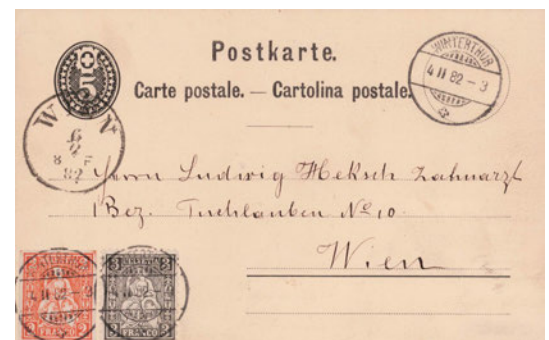 5
Postkarte.
Carte postale. — Cartolina postale.
WINTERTHUR
4 II 82 – 3
WIEN
6
2
8 F
82
Herrn Ludwig Heksch Zahnarzt
I Bez. Tuchlauben No 10.
Wien
WINTERTHUR
4 II 82 – 3
FRANCO
3
3
HELVETIA
3
FRANCO
3